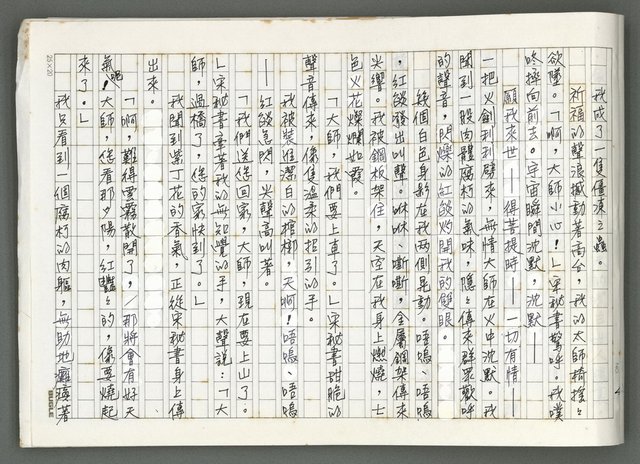 我成了一隻僵凍之蟲。
祈福的聲浪撼動著高台，我的太師椅搖搖
欲墜。「啊，大師小心！」宋秘書驚呼。我噗
咚摔向前去。宇宙瞬間沈默，沈默——
願我來世——得菩提時——一切有情——
一把火劍刮到劈來，無情大師在火中沈默。我
聞到一股肉體腐朽的氣味，隱隱傳來群眾歡呼
的聲音，閃爍的紅燄灼閉我的雙眼。
幾個白色身影在我兩側晃動。唔嗚、唔嗚
，紅燄發出叫聲。咻咻、嘶嘶，金屬鋼架傳來
尖響。我被鋼板架住，天空在我身上燃燒，七
色火花燦爛如霞。
「大師，我們要上車了。」宋秘書甜脆的
聲音傳來，像隻溫柔的招引的手。
我被裝進潔白的棺槨，天啊！唔嗚、唔嗚
——紅燄急閃，尖聲高叫著。
「我們送您回家，大師，現在要上山了。
」宋秘書牽著我的無知覺的手，大聲說：「大
師，過橋了，您的家快到了。」
我聞到紫丁花的香氣，正從宋秘書身上傳
出來。
「啊，難得雲霧散開了，那將會有好天
氣呢！大師，您看那夕陽，紅豔豔的，像要燒起
來了。」
我只看到一個腐朽的肉軀，無助地癱瘓著
25×20